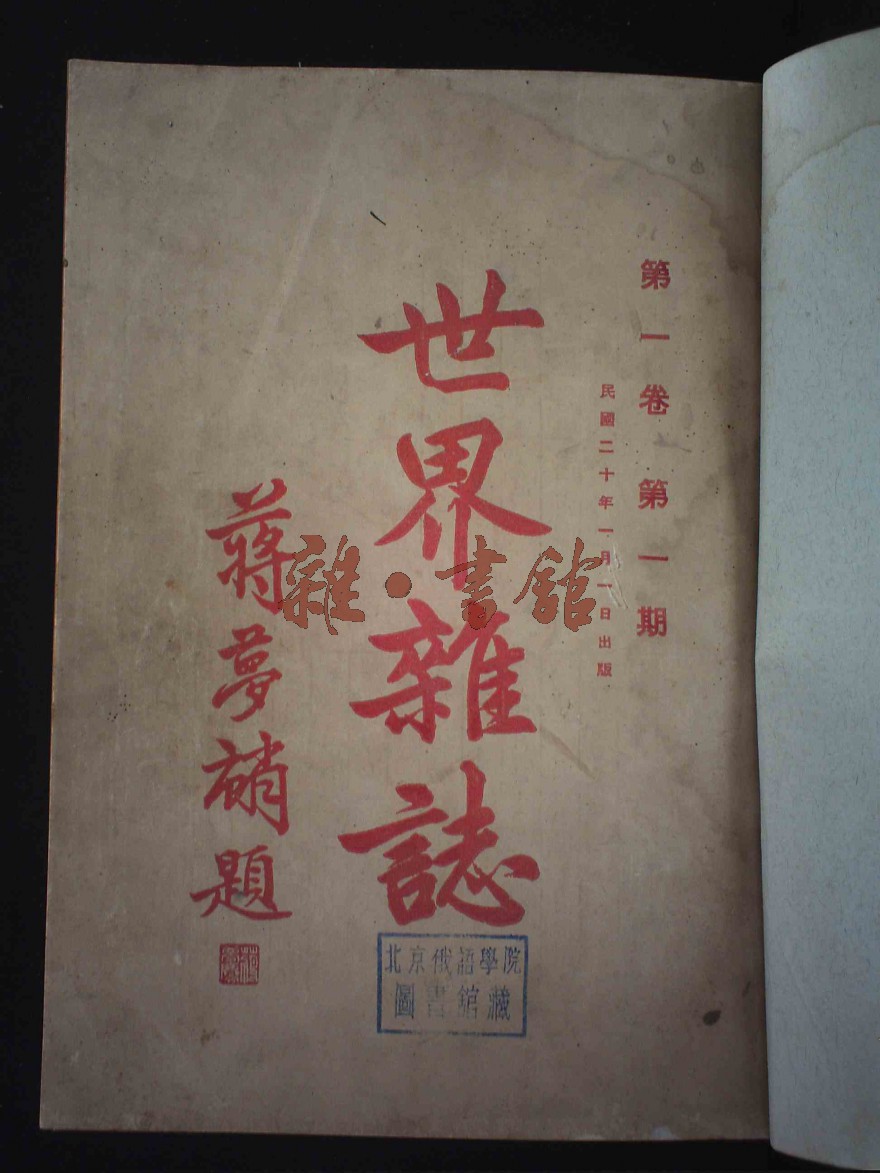 第一卷第一期
民國二十年一月一日出版
世界雜誌
蔣夢麟題
雜·書館
北京俄語學院
圖書館藏